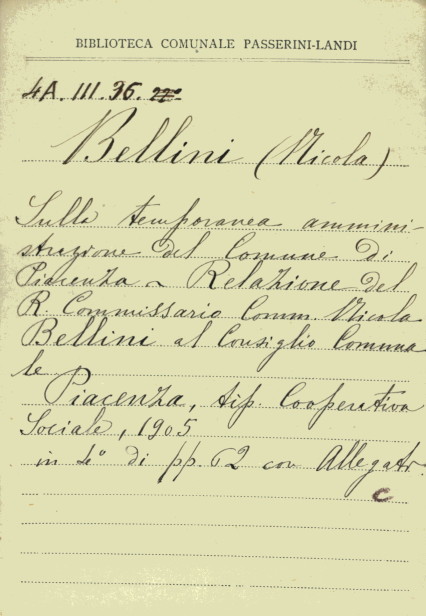 BIBLIOTECA COMUNALE PASSERINI-LANDI
4A. III. 36.
Bellini (Nicola)
Sulla temporanea ammini-
strazione del Comune di
Piacenza - Relazione del
R. Commissario Comm. Nicola
Bellini al Consiglio Comuna
le
Piacenza, tip. Cooperativa
Sociale, 1905
in 4° di pp. 62 con Allegati.
C